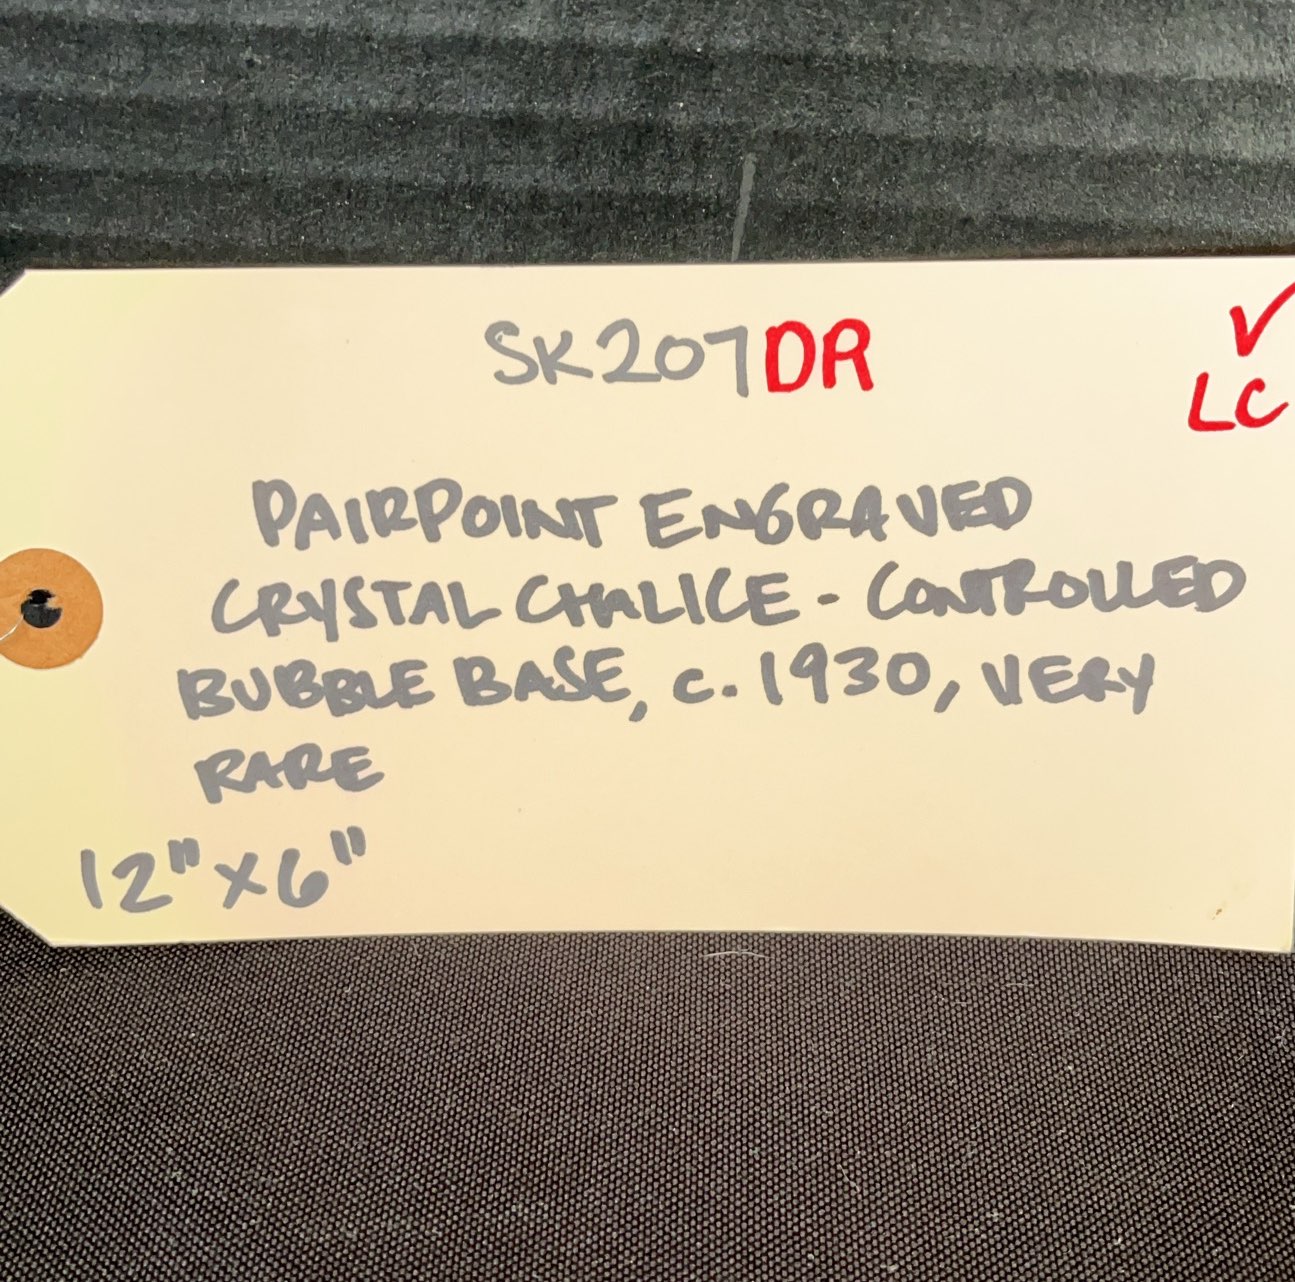 SK207DR
✓
LC
PAIRPOINT ENGRAVED
CRYSTAL CHALICE - CONTROLLED
BUBBLE BASE, c. 1930, VERY
RARE
12" x 6"